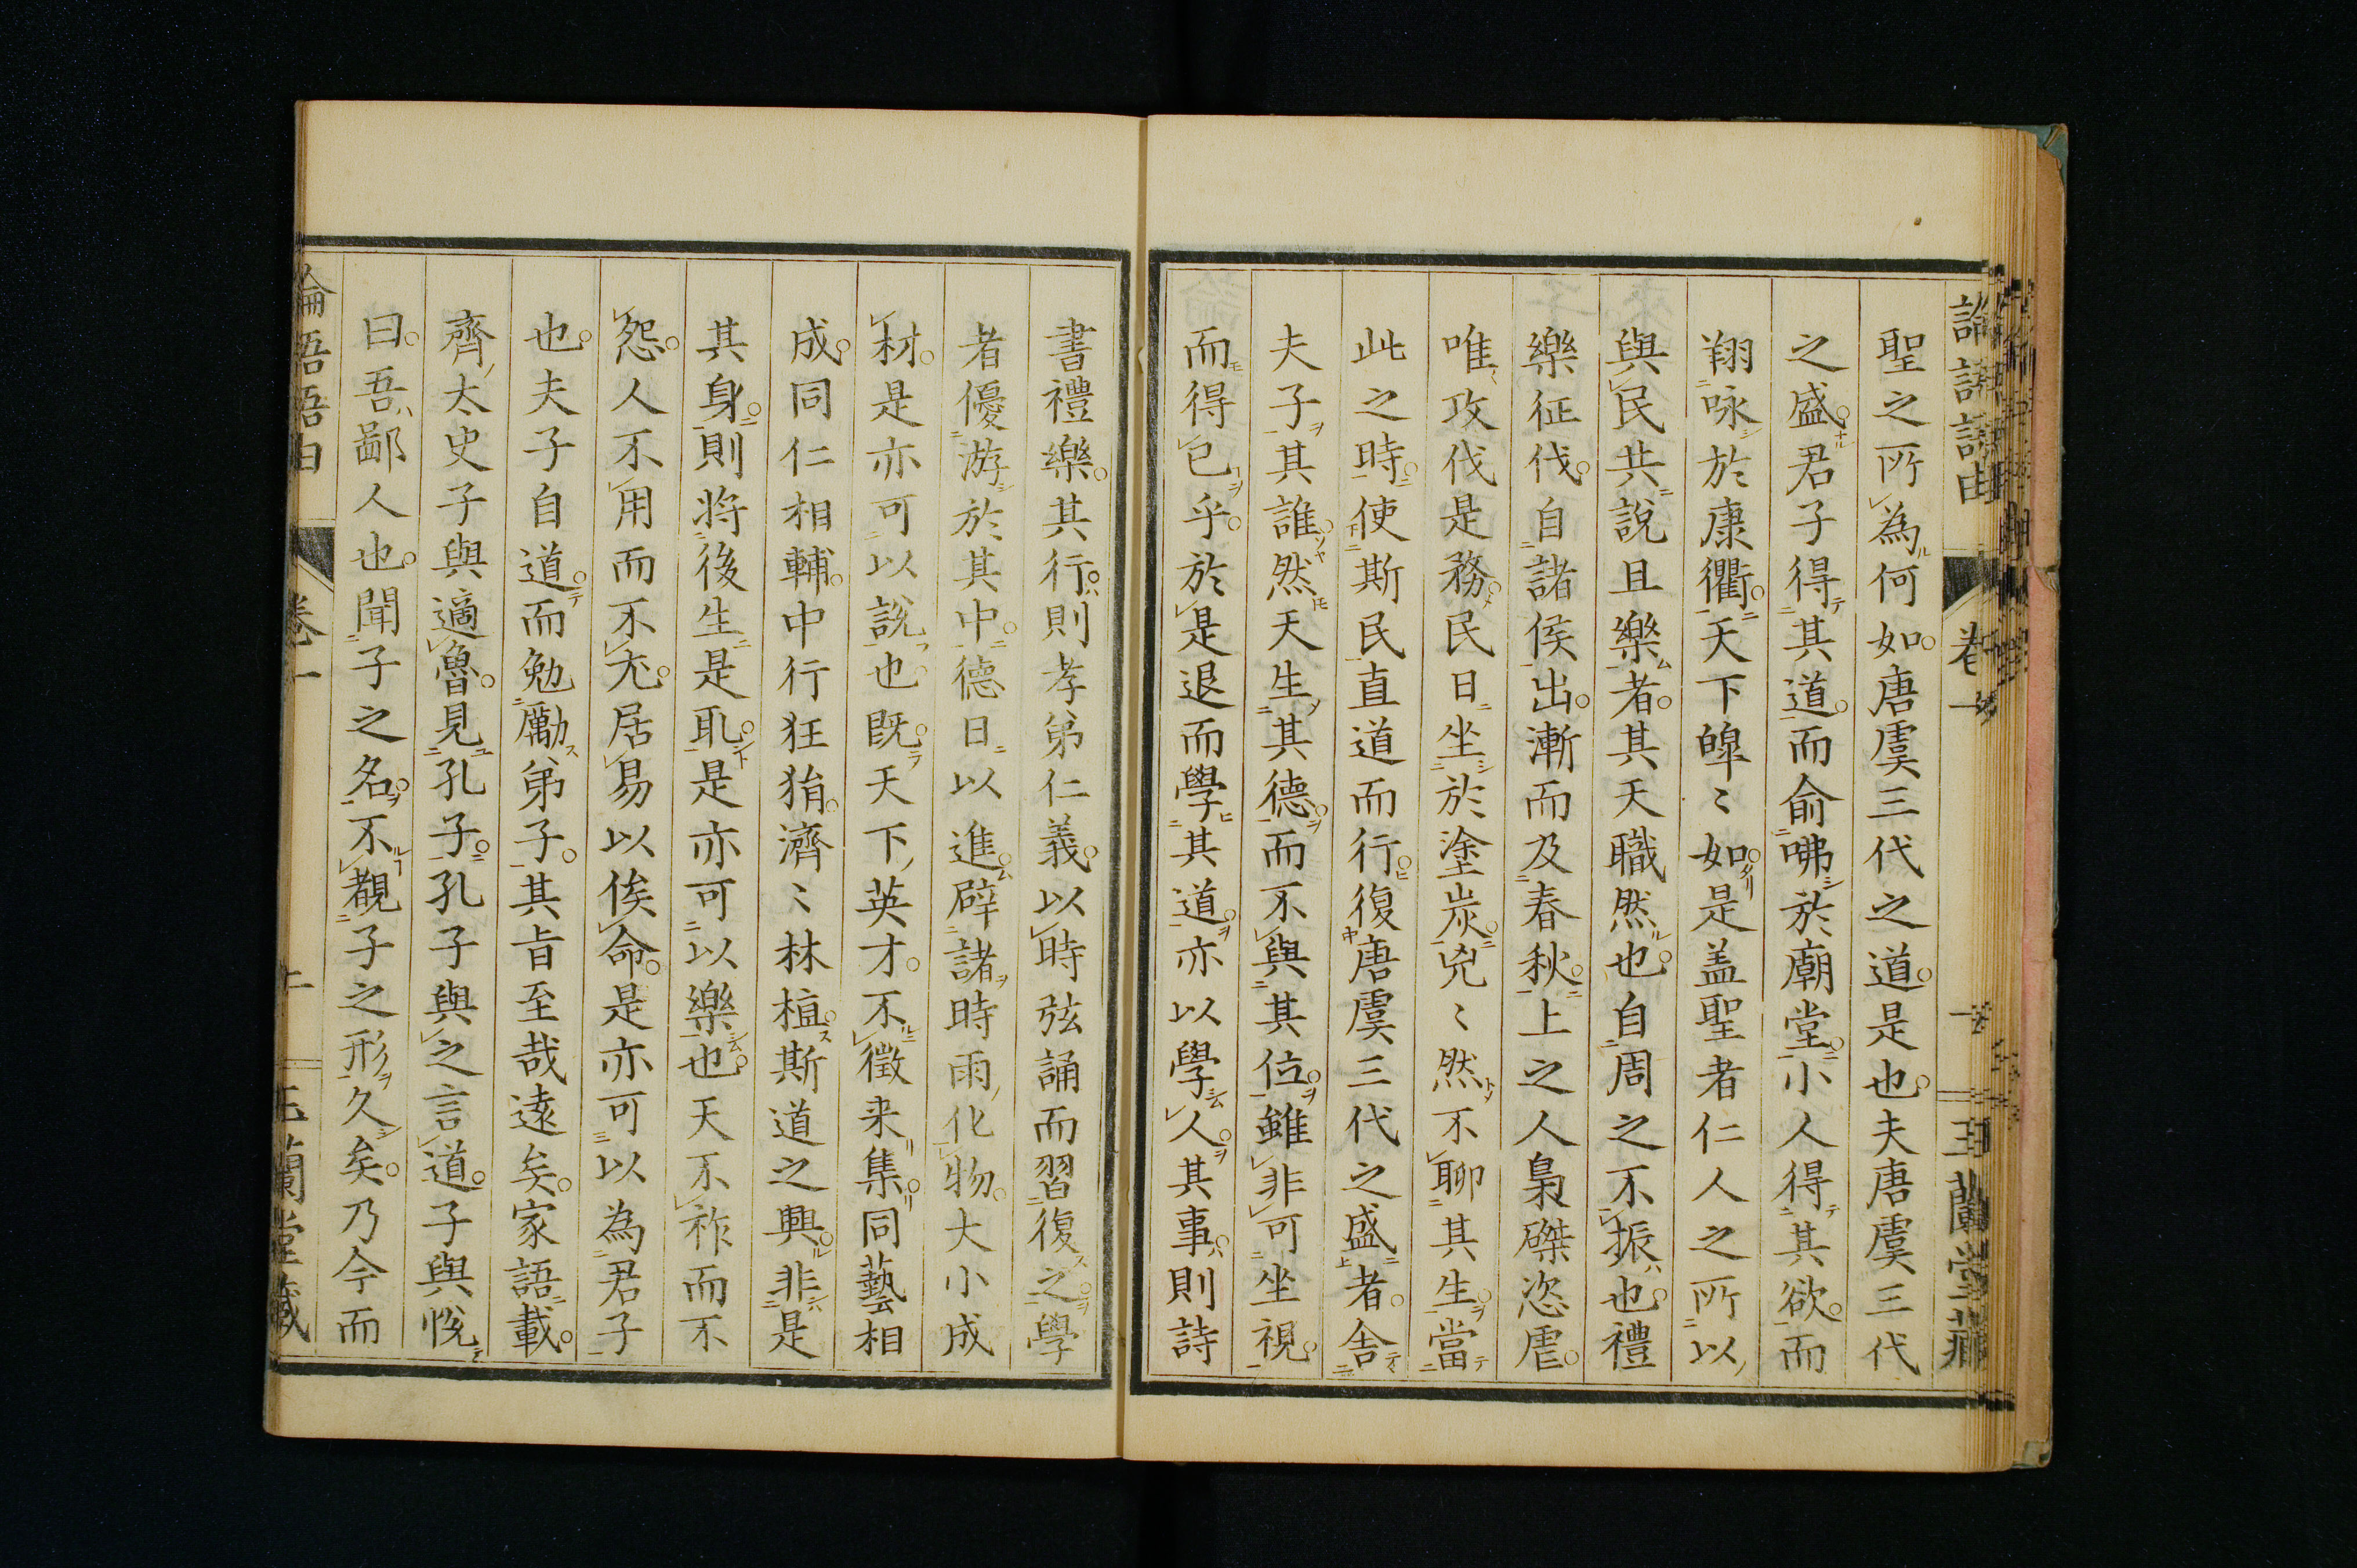 論語語由 卷一 玉蘭堂藏
聖之所為何如唐虞三代之道是也夫唐虞三代
之盛君子得其道而俞咈於廟堂小人得其欲而
翔咏於康衢天下皞〻如是盖聖者仁人之所以
與民共說且樂者其天職然也自周之不振也禮
樂征伐自諸侯出漸而及春秋上之人梟磔恣虐
唯攻伐是務民日坐於塗炭兇〻然不聊其生當
此之時使斯民直道而行復唐虞三代之盛者舍
夫子其誰然天生其德而不與其位雖非可坐視
而得已乎於是退而學其道亦以學人其事則詩
書禮樂其行則孝弟仁義以時弦誦而習復之學
者優游於其中德日以進辟諸時雨化物大小成
材是亦可以說也既天下英才不徵来集同藝相
成同仁相輔中行狂狷濟〻林植斯道之興非是
其身則將後生是耴是亦可以樂也天不祚而不
怨人不用而不尤居易以俟命是亦可以為君子
也夫子自道而勉勵弟子其旨至哉遠矣家語載
齊太史子與適魯見孔子孔子與之言道子與悅
曰吾鄙人也聞子之名不覩子之形久矣乃今而
論語語由 卷一 玉蘭堂藏